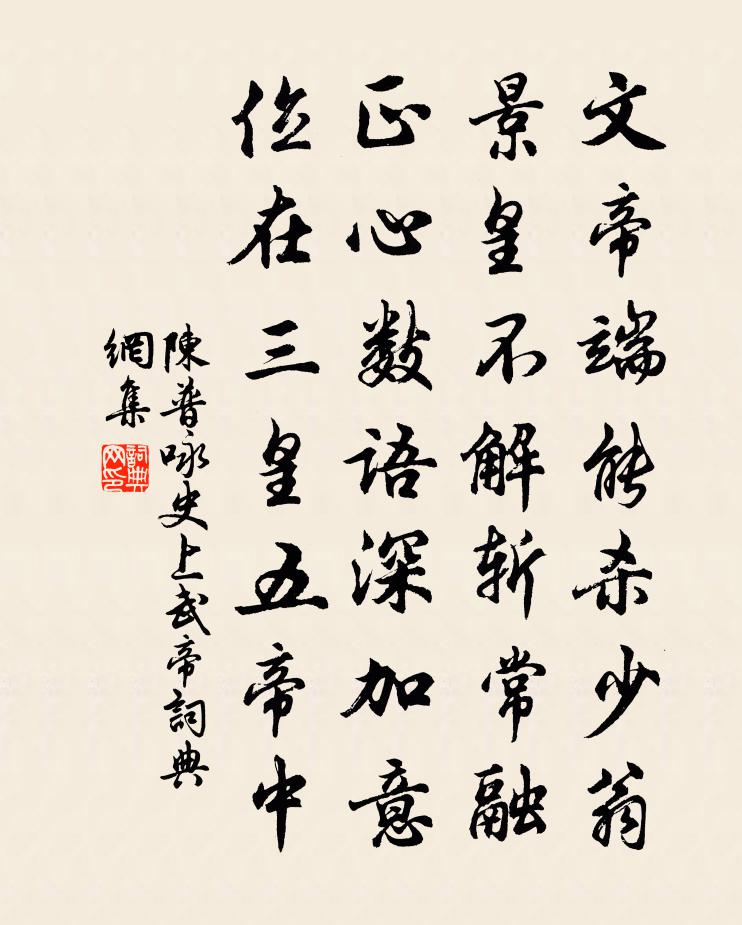 文帝端能杀少翁
景皇不解斩常融
正心数语深加意
位在三皇五帝中
陳普咏史上武帝詞典
網集
詞典
网印